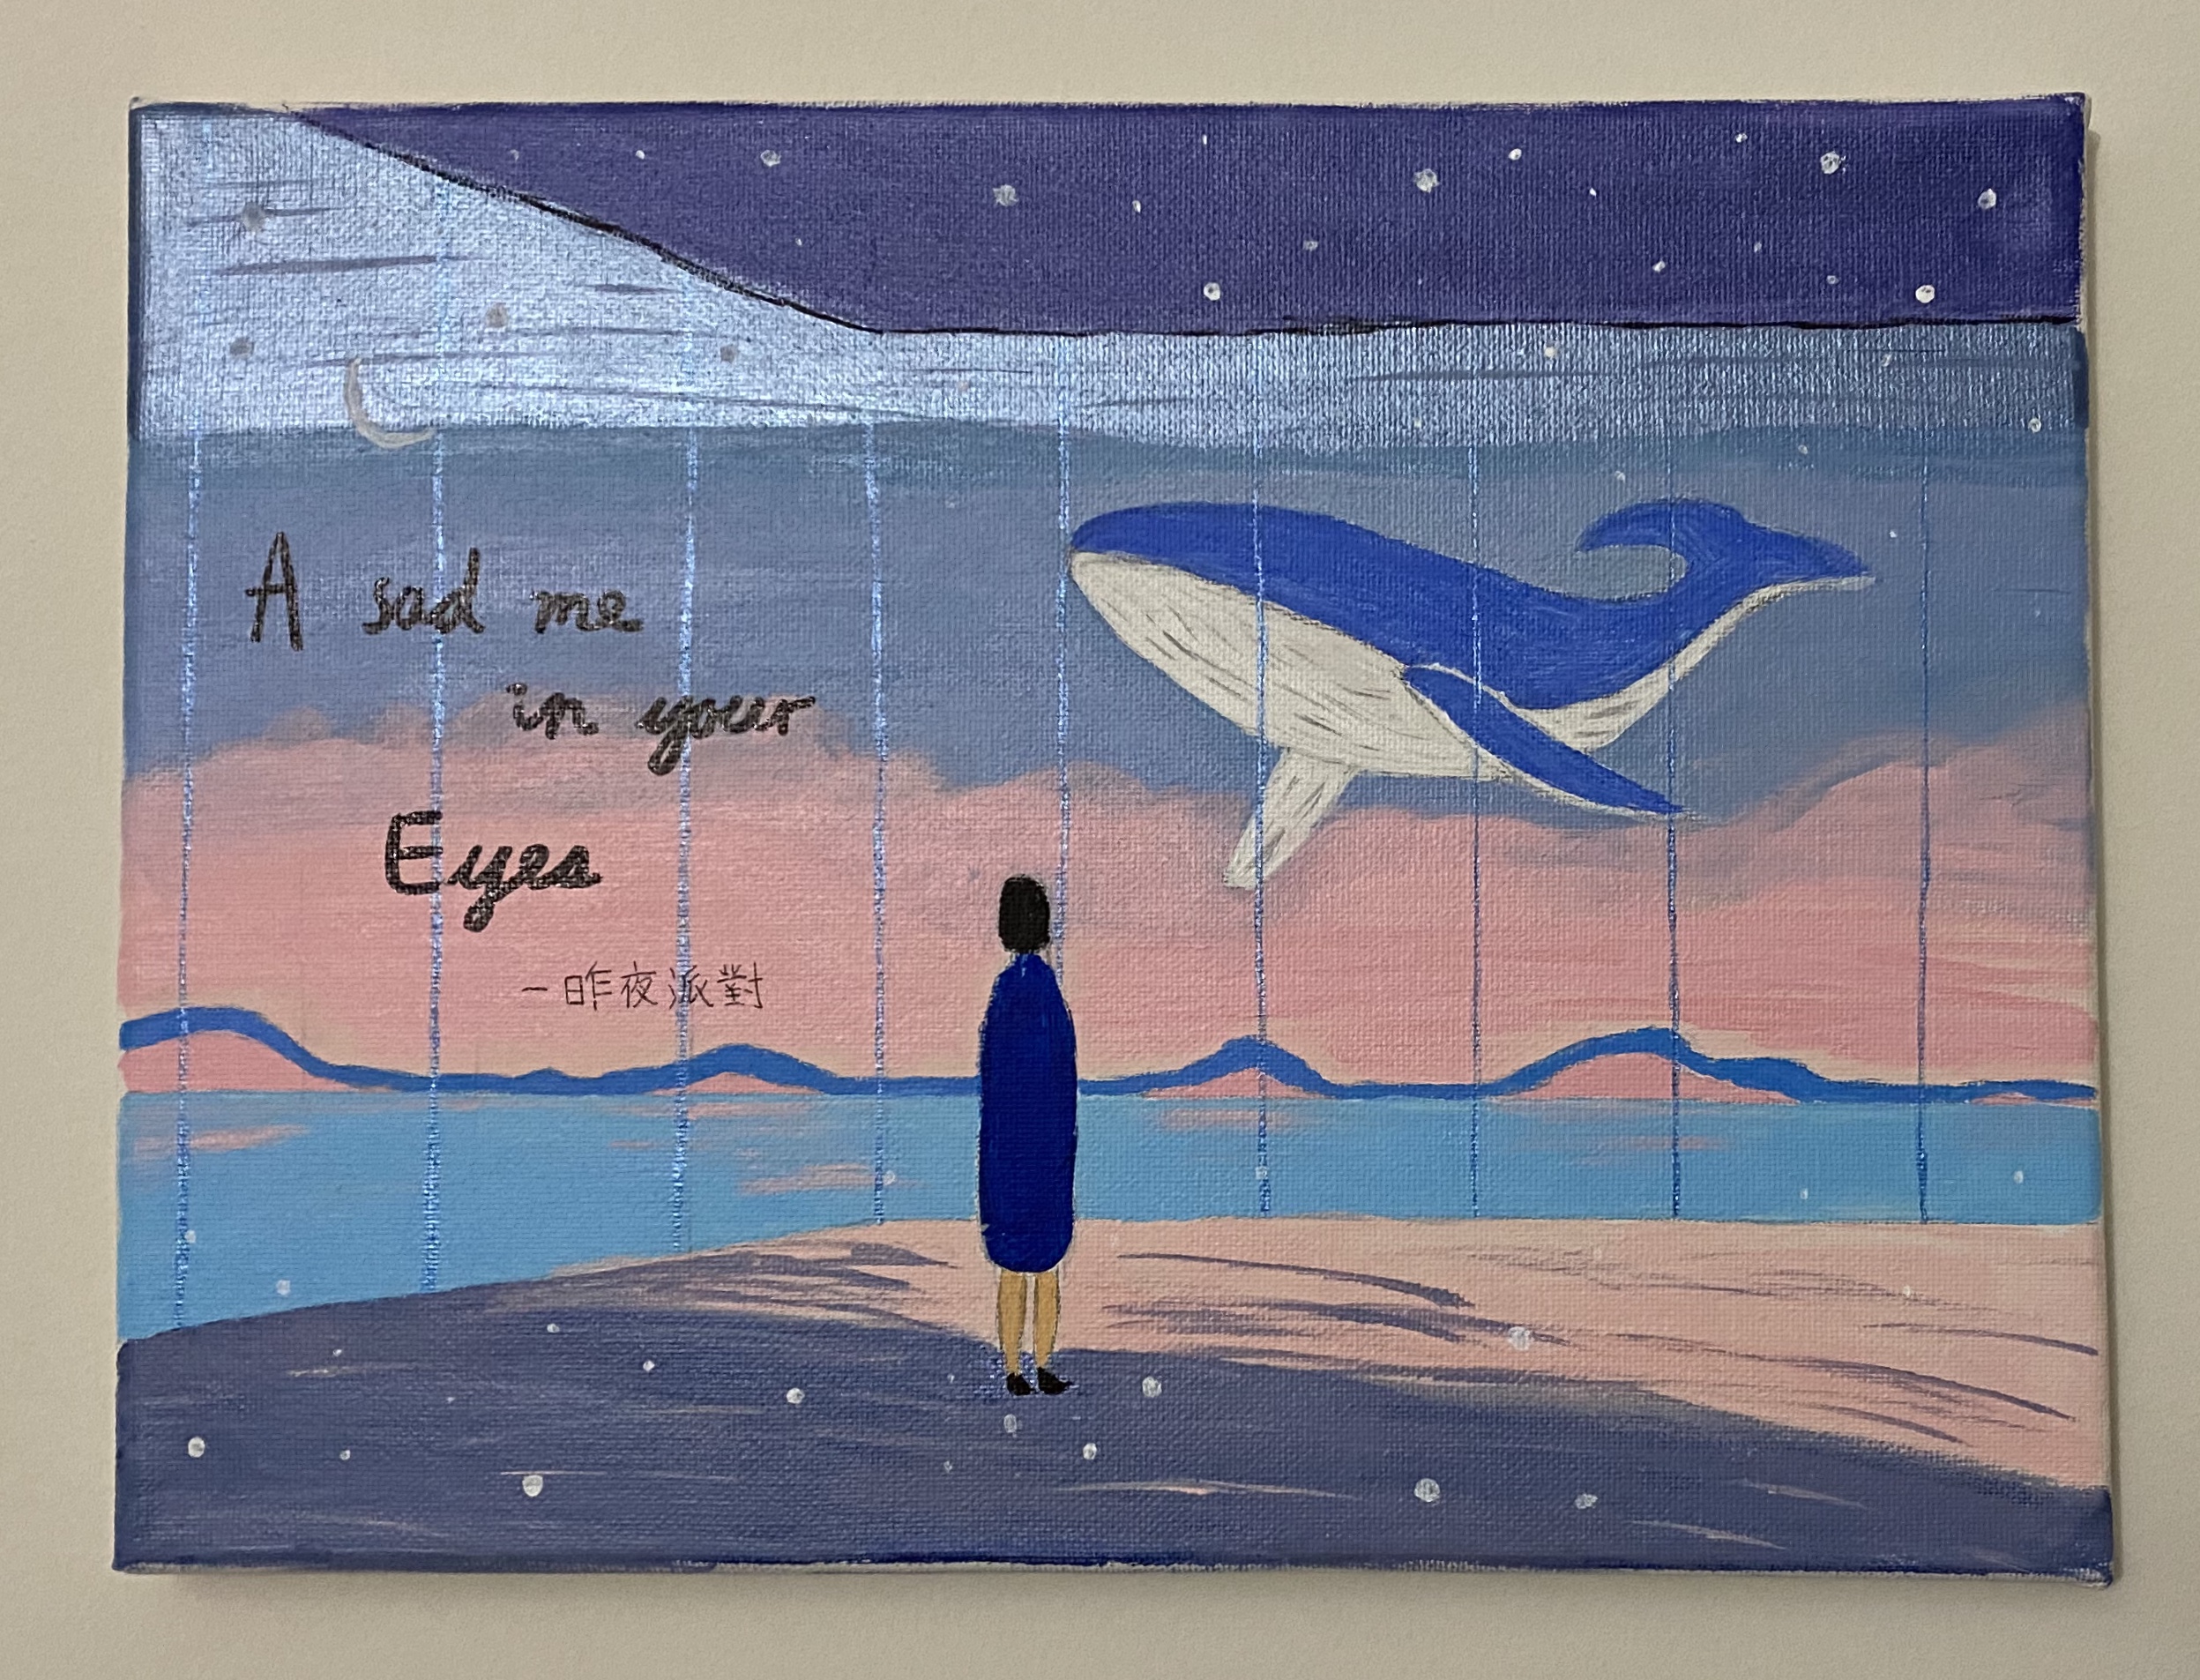 A sad me
in your
Eyes
- 昨夜派對